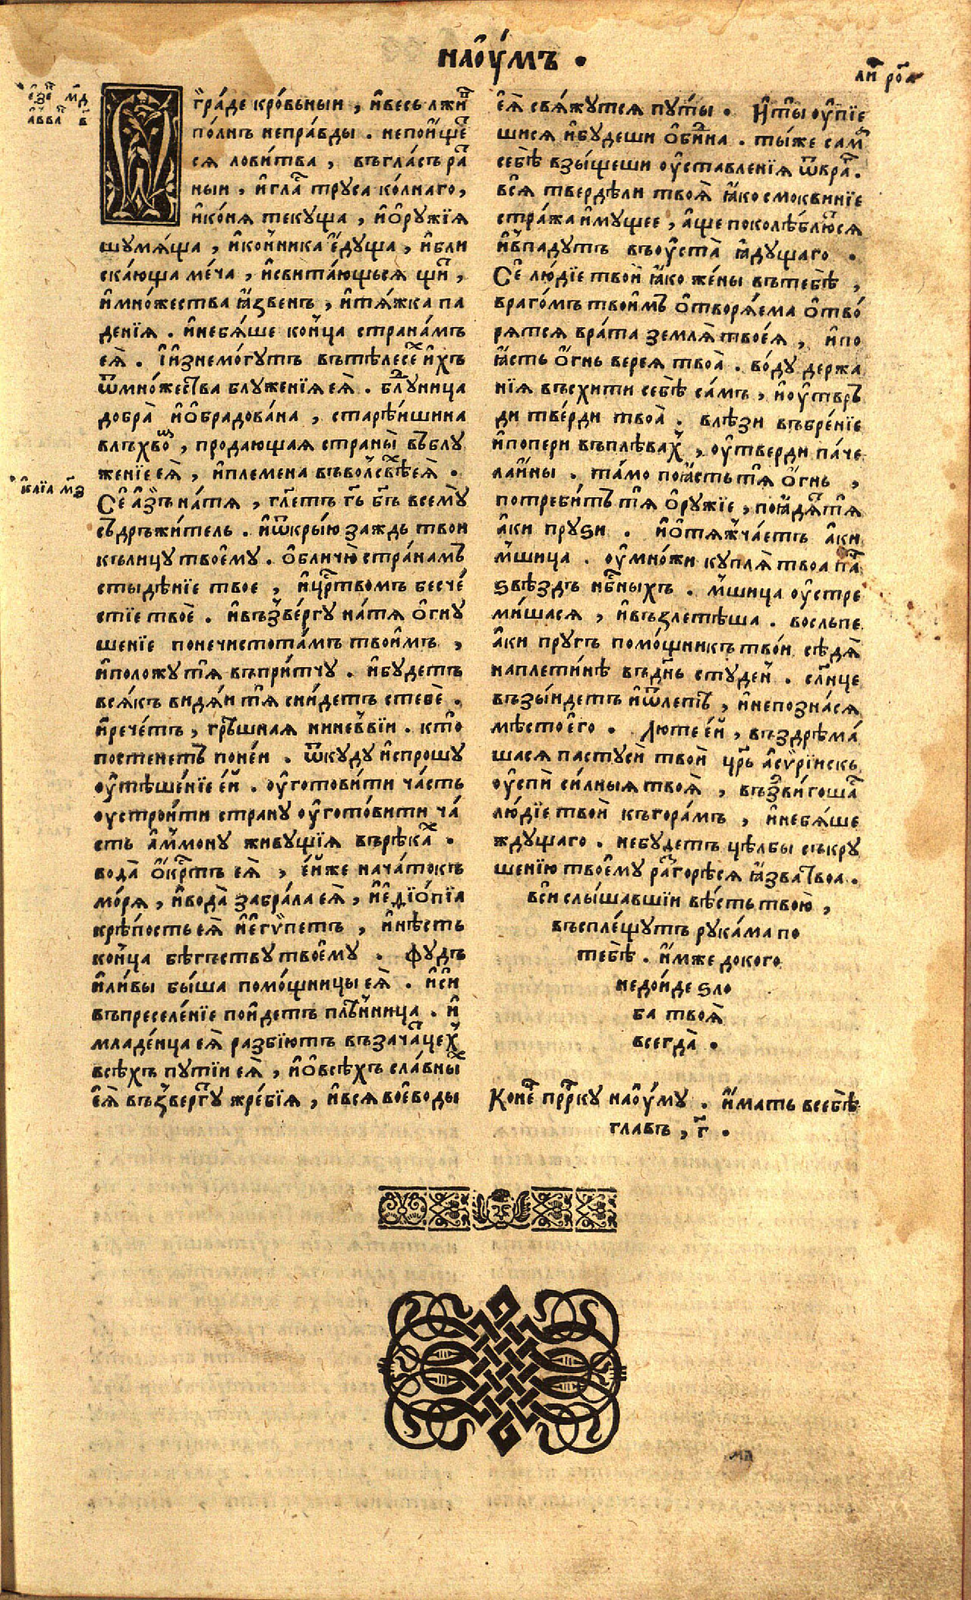 наоумъ .
ли рօа
езе мд
аввл в
ѿ граде кровьныи , ивесь лжи
полнъ неправды . непоище
ся ловитва , възгласъ ра
ныи , иглас труса колнаго ,
иконя текуща , иоружїя
шумяща , иконника едуща , ибли
скающа меча , исвитающься щи ,
имножества язвенъ , итяжка па
денїя . инебяше конца странамъ
ея . иизнемогутъ вътѣлесе ихъ
ѿмножества блуженїя ея . блудница
добра иобрадована , старѣишина
влъхво , продающая страны въблу
женїе ея , иплемена въволсвѣ ея .
исаїа мз
Се азъ натя , глетъ гь бгъ всему
съдръжитель . иѿкрыю заждь твои
кълицу твоему . обличю странамъ
стыдѣнїе твое , ицртвомъ бесче
стїе твое . ивъзвергу натя огну
шенїе понечистотамъ твоимъ ,
иположу тя въпритчу . ибудетъ
всякъ видяи тя снидетъ стебе .
иречетъ , грѣшная ниневвїи . кто
постенетъ понеи . ѿкуду испрошу
оутѣшенїе еи . оуготовити часть
оустроити страну оуготовити ча
сть аммону живущїя върѣках .
вода окртъ ея , еиже начатокъ
моря , ивода забрала ея , иедїопїа
крѣпость ея иегѵпетъ , инѣсть
конца бѣгъству твоему . фудъ
иливы быша помощницы ея . иси
въпреселенїе поидетъ плѣнница . и
младенца ея разбїютъ възачацех
всѣхъ путїи ея , иовсѣхъ славны
ея възвергу жребїя , ився воеводы
ея свяжутся путы . Иты оупїе
шися ибудеши обидна . тыже сам
себѣ взыщеши оуставленїя ѿвра .
вся твердѣли твоя яко смоквинїе
стража имущее , аще поколѣблются
ивпадутъ въоуста ядущаго .
Се людїе твои яко жены вътебѣ ,
врагомъ твоимъ отворяема отво
рятся врата земля твоея , ипо
ясть огнь верея твоа . воду держа
нїя въсхити себѣ самъ , иоутвръ
ди тверди твоа . влѣзи въбренїе
ипопери въплѣвах , оутверди паче
лаины . тамо поясть тя огнь ,
потребитъ тя оружїе , поядят тя
аки прузи . иотяжчаетъ аки
мшица . оумножи купля твоа па
ѕвѣздъ нбныхъ . мшица оустре
мишася , ивъзлетѣша . восльпе
аки пругъ помощникъ твои сѣдя
наплетинѣ въднь студен . слнце
възыидетъ иѿлетѣ , инепознася
мѣсто его . Люте еи , въздрѣма
шася пастуси твои црь асѵрїискь
оуспи силныя твоя , въздвигоша
людїе твои къгорамъ , инебяше
ждущаго . небудетъ цѣлбы съкру
шенїю твоему разгорѣся язва твоа .
вси слышавшїи вѣсть твою ,
въсплещутъ рукама по
тебѣ . имже докого
недоиде ѕло
ба твоя
всегда .
Конец прркку наоуму . имать всебѣ
главъ , г .